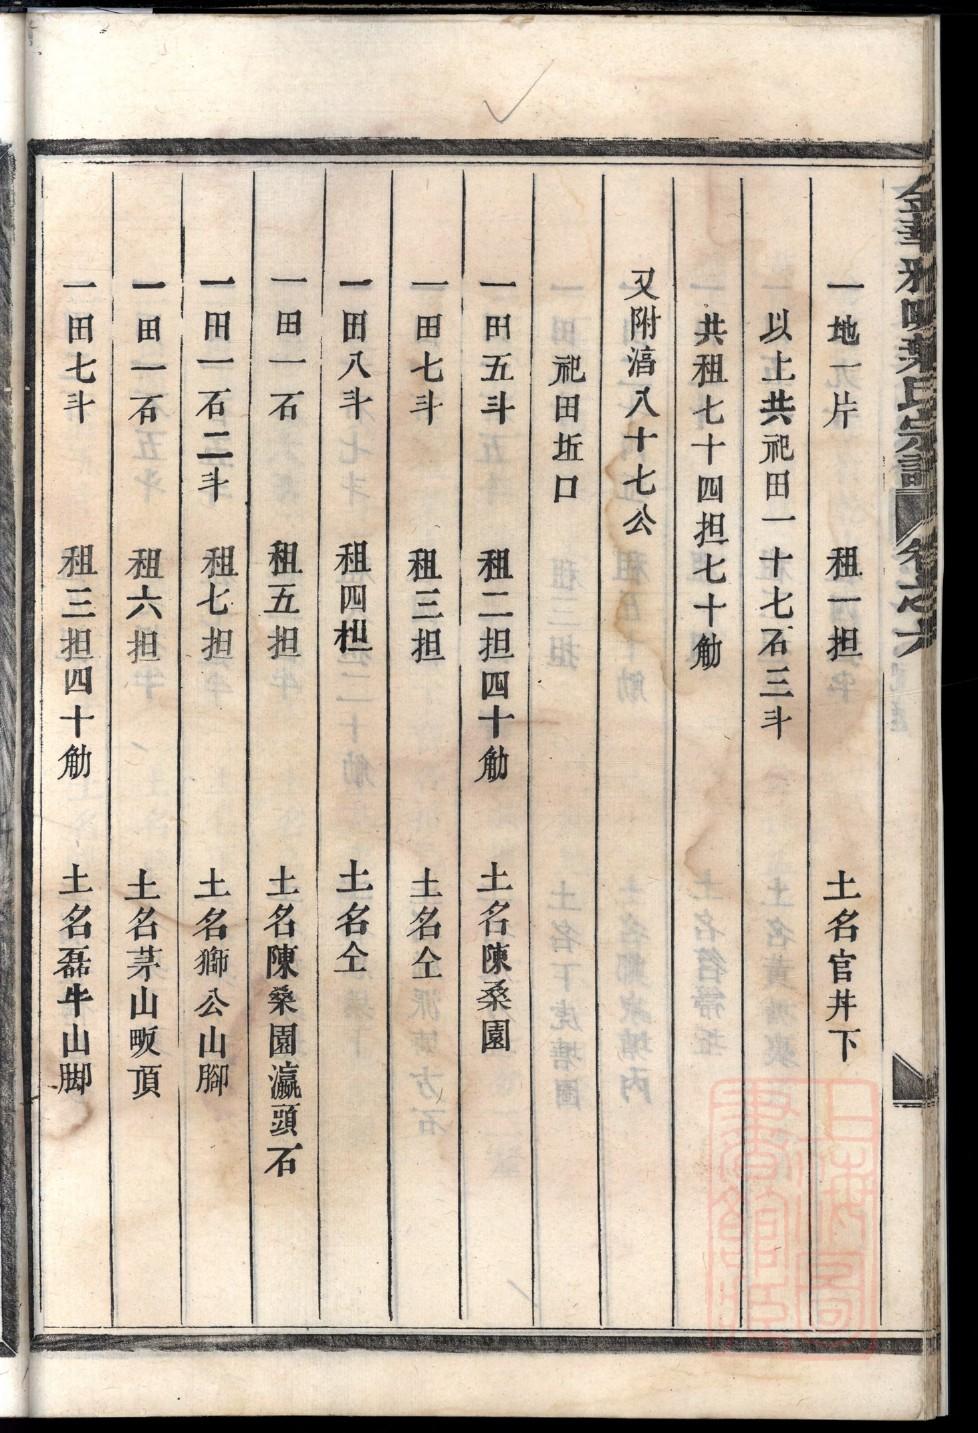 金華雅畈葉氏宗譜 卷之六
一地一片 租一担 土名官井下
以上共祀田一十七石三斗
共租七十四担七十觔
又附濇八十七公
一田 祀田坵口
一田五斗 租二担四十觔 土名陳桑園
一田七斗 租三担 土名仝
一田八斗 租四担 土名仝
一田一石 租五担 土名陳桑園瀛頭石
一田一石二斗 租七担 土名獅公山腳
一田一石 租六担 土名茅山畈頂
一田七斗 租三担四十觔 土名磊牛山脚
上海圖書館藏